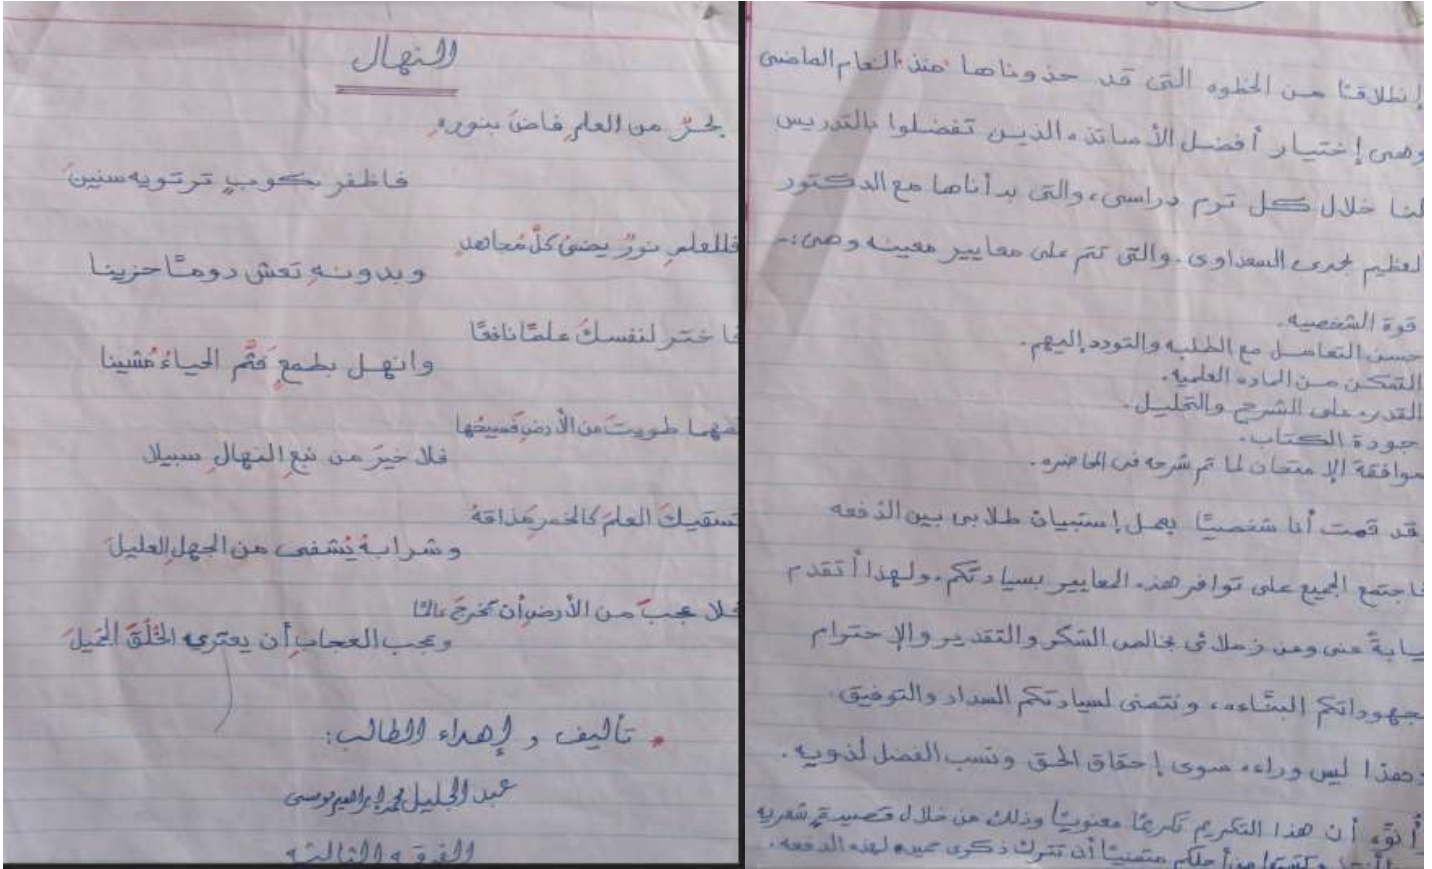 إنطلاقتًا من الخطوه التى قد حذوناها منذ العام الماضى
وهى إختيار أفضل الأساتذه الذين تفضلوا بالتدريس
لنا خلال كل ترم دراسى، والتى بدأناها مع الدكتور
لعظيم مجدى السعداوى. والتى تتم على معايير معينه وهى:-
قوة الشخصيه.
حسن التعامل مع الطلبه والتودد إليهم.
التمكن من الماده العلميه.
القدره على الشرح والتحليل.
جودة الكتاب.
موافقة الإمتحان لما تم شرحه فى المحاضره.
قد قمت أنا شخصيًا بعمل إستبيان طلابى بين الدفعه
فاجتمع الجميع على توافر هذه المعايير بسيادتكم. ولهذا أتقدم
يابةً عنى وعن زملائى بخالص الشكر والتقدير والإحترام
جهوداتكم البنَّاءه، ونتمنى لسيادتكم السداد والتوفيق.
وهذا ليس وراءه سوى إحقاق الحق ونسب الفضل لذويه.
أنوِّه أن هذا التكريم تكريمًا معنويًا وذلك من خلال قصيدةٍ شعريه
وكتبتها من أجلكم متمنيًا أن تترك ذكرى لهذه الدفعه.
النهال
بحرٌ من العلمِ فاضَ بنورهِ
فاظفر بكوبٍ ترتويه سنينَ
فللعلمِ نورٌ يضئُ كلَّ مُجاهدٍ
وبدونهِ تعش دومًا حزينا
فاختر لنفسكَ علمًا نافعًا
وانهل بطمعٍ فثَّم الحياءُ مُشينا
فمهما طويتَ من الأرضِ فسيحُها
فلا خيرَ من نبعِ النهالِ سبيلا
تسقيكَ العلمَ كالخمرِ مذاقهُ
وشرابهُ يُشفى من الجهلِ العليلَ
فلا عجبَ من الأرضِ أن تخرجَ عالمًا
وعجب العجابِ أن يعترى الخَلَقَ الجَميلَ
• تأليف و إهداء الطالب:
عبد الجليل محمد إبراهيم موسى
الفرقه الثالثه